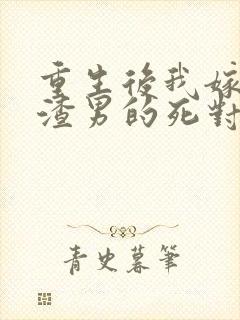 重生後我嫁
渣男的死對
青史暮筆